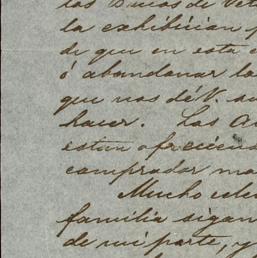 los Bucos de Vel
la exhibician p
de que en esta c
ó abandanar la
que nos dé V. su
hacer. Las A
estan afreciend
comprador ma
Mucho cele
familia sigan
de mi parte, y